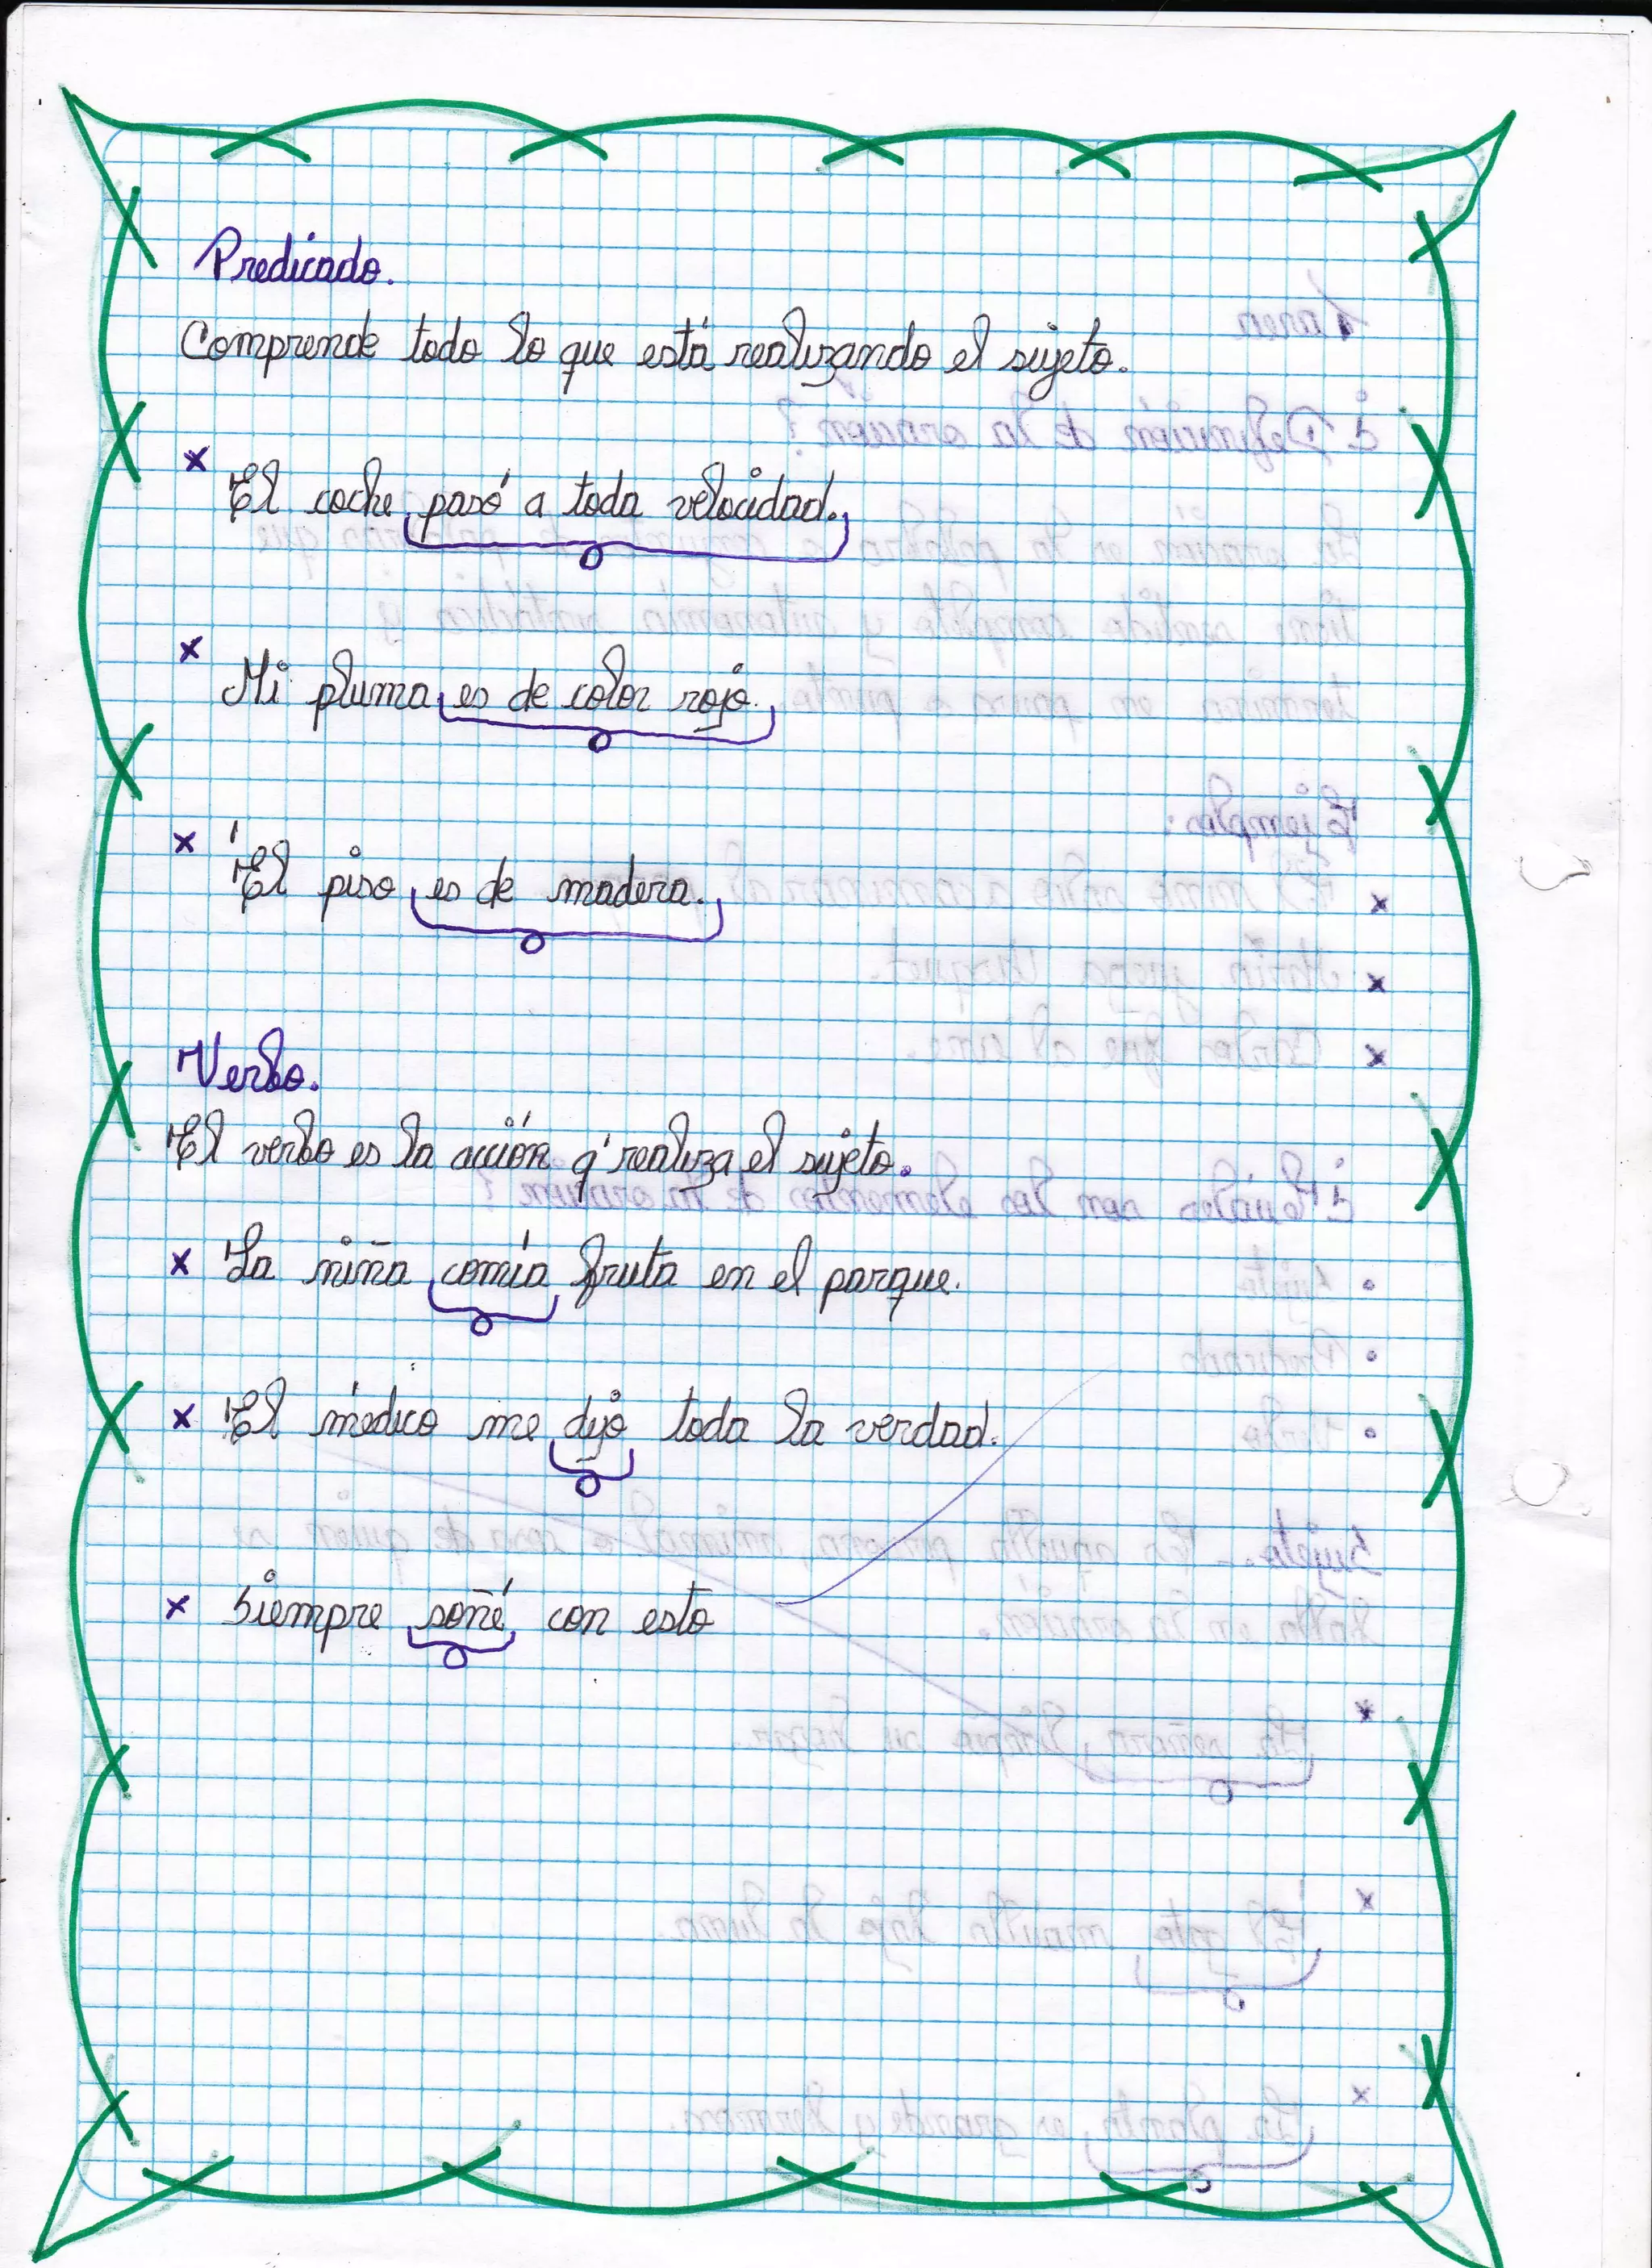 Predicado.
Comprende todo lo que está realizando el sujeto.
x El coche pasó a toda velocidad.
x Mi pluma es de color rojo.
x El piso es de madera.
Verbo.
El verbo es la acción q' realiza el sujeto.
x La niña comía fruta en el parque.
x El médico me dijo toda la verdad.
x Siempre soñé con esto